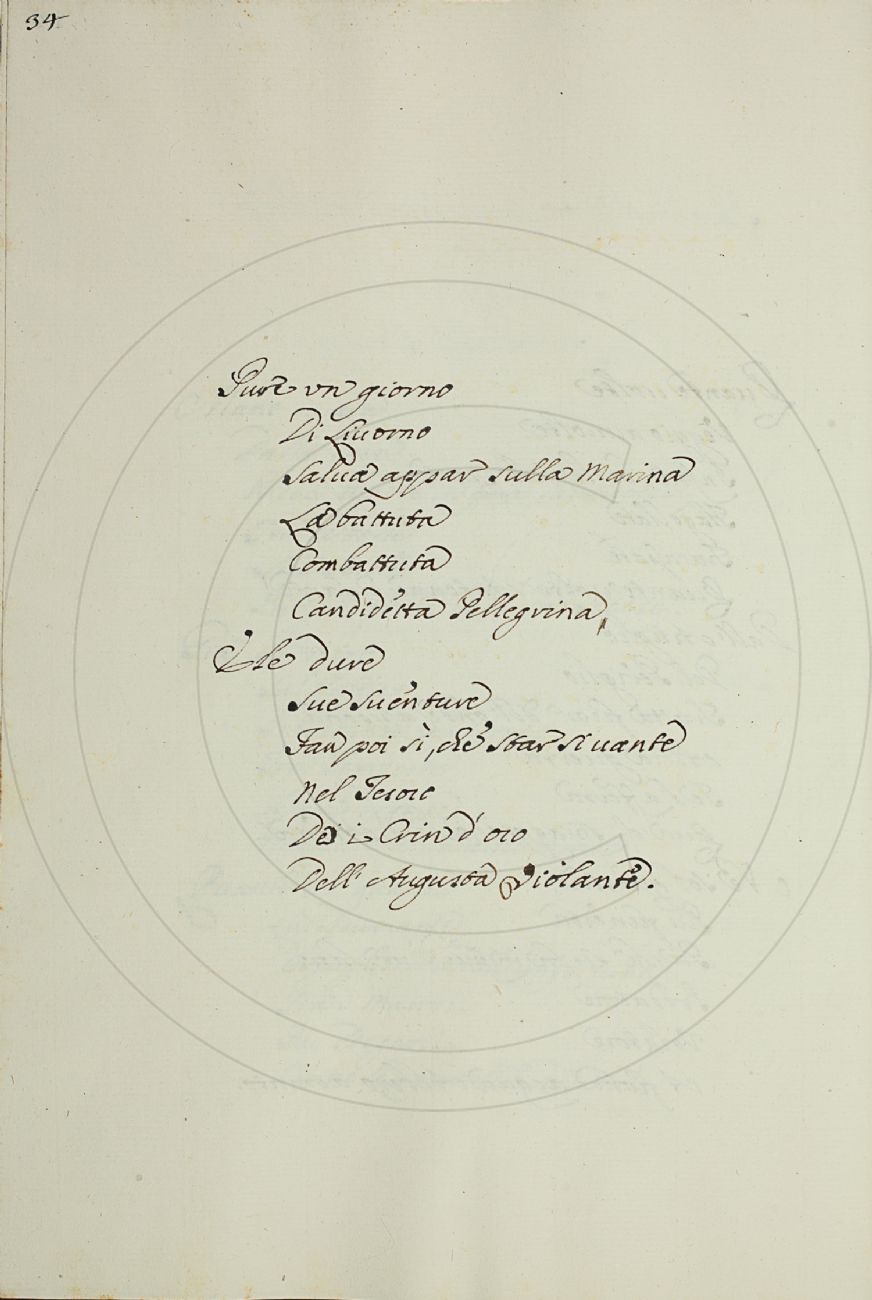 34
Pure vn giorno
Di Liuorno
Salua appar sulla Marina
La battuta
Combattuta
Candidetta Pellegrina,
E le dure
sue suenture
Fan poi sì, che star si uante
Nel Tesoro
De i Crin d'oro
Dell' Augusta Violante.